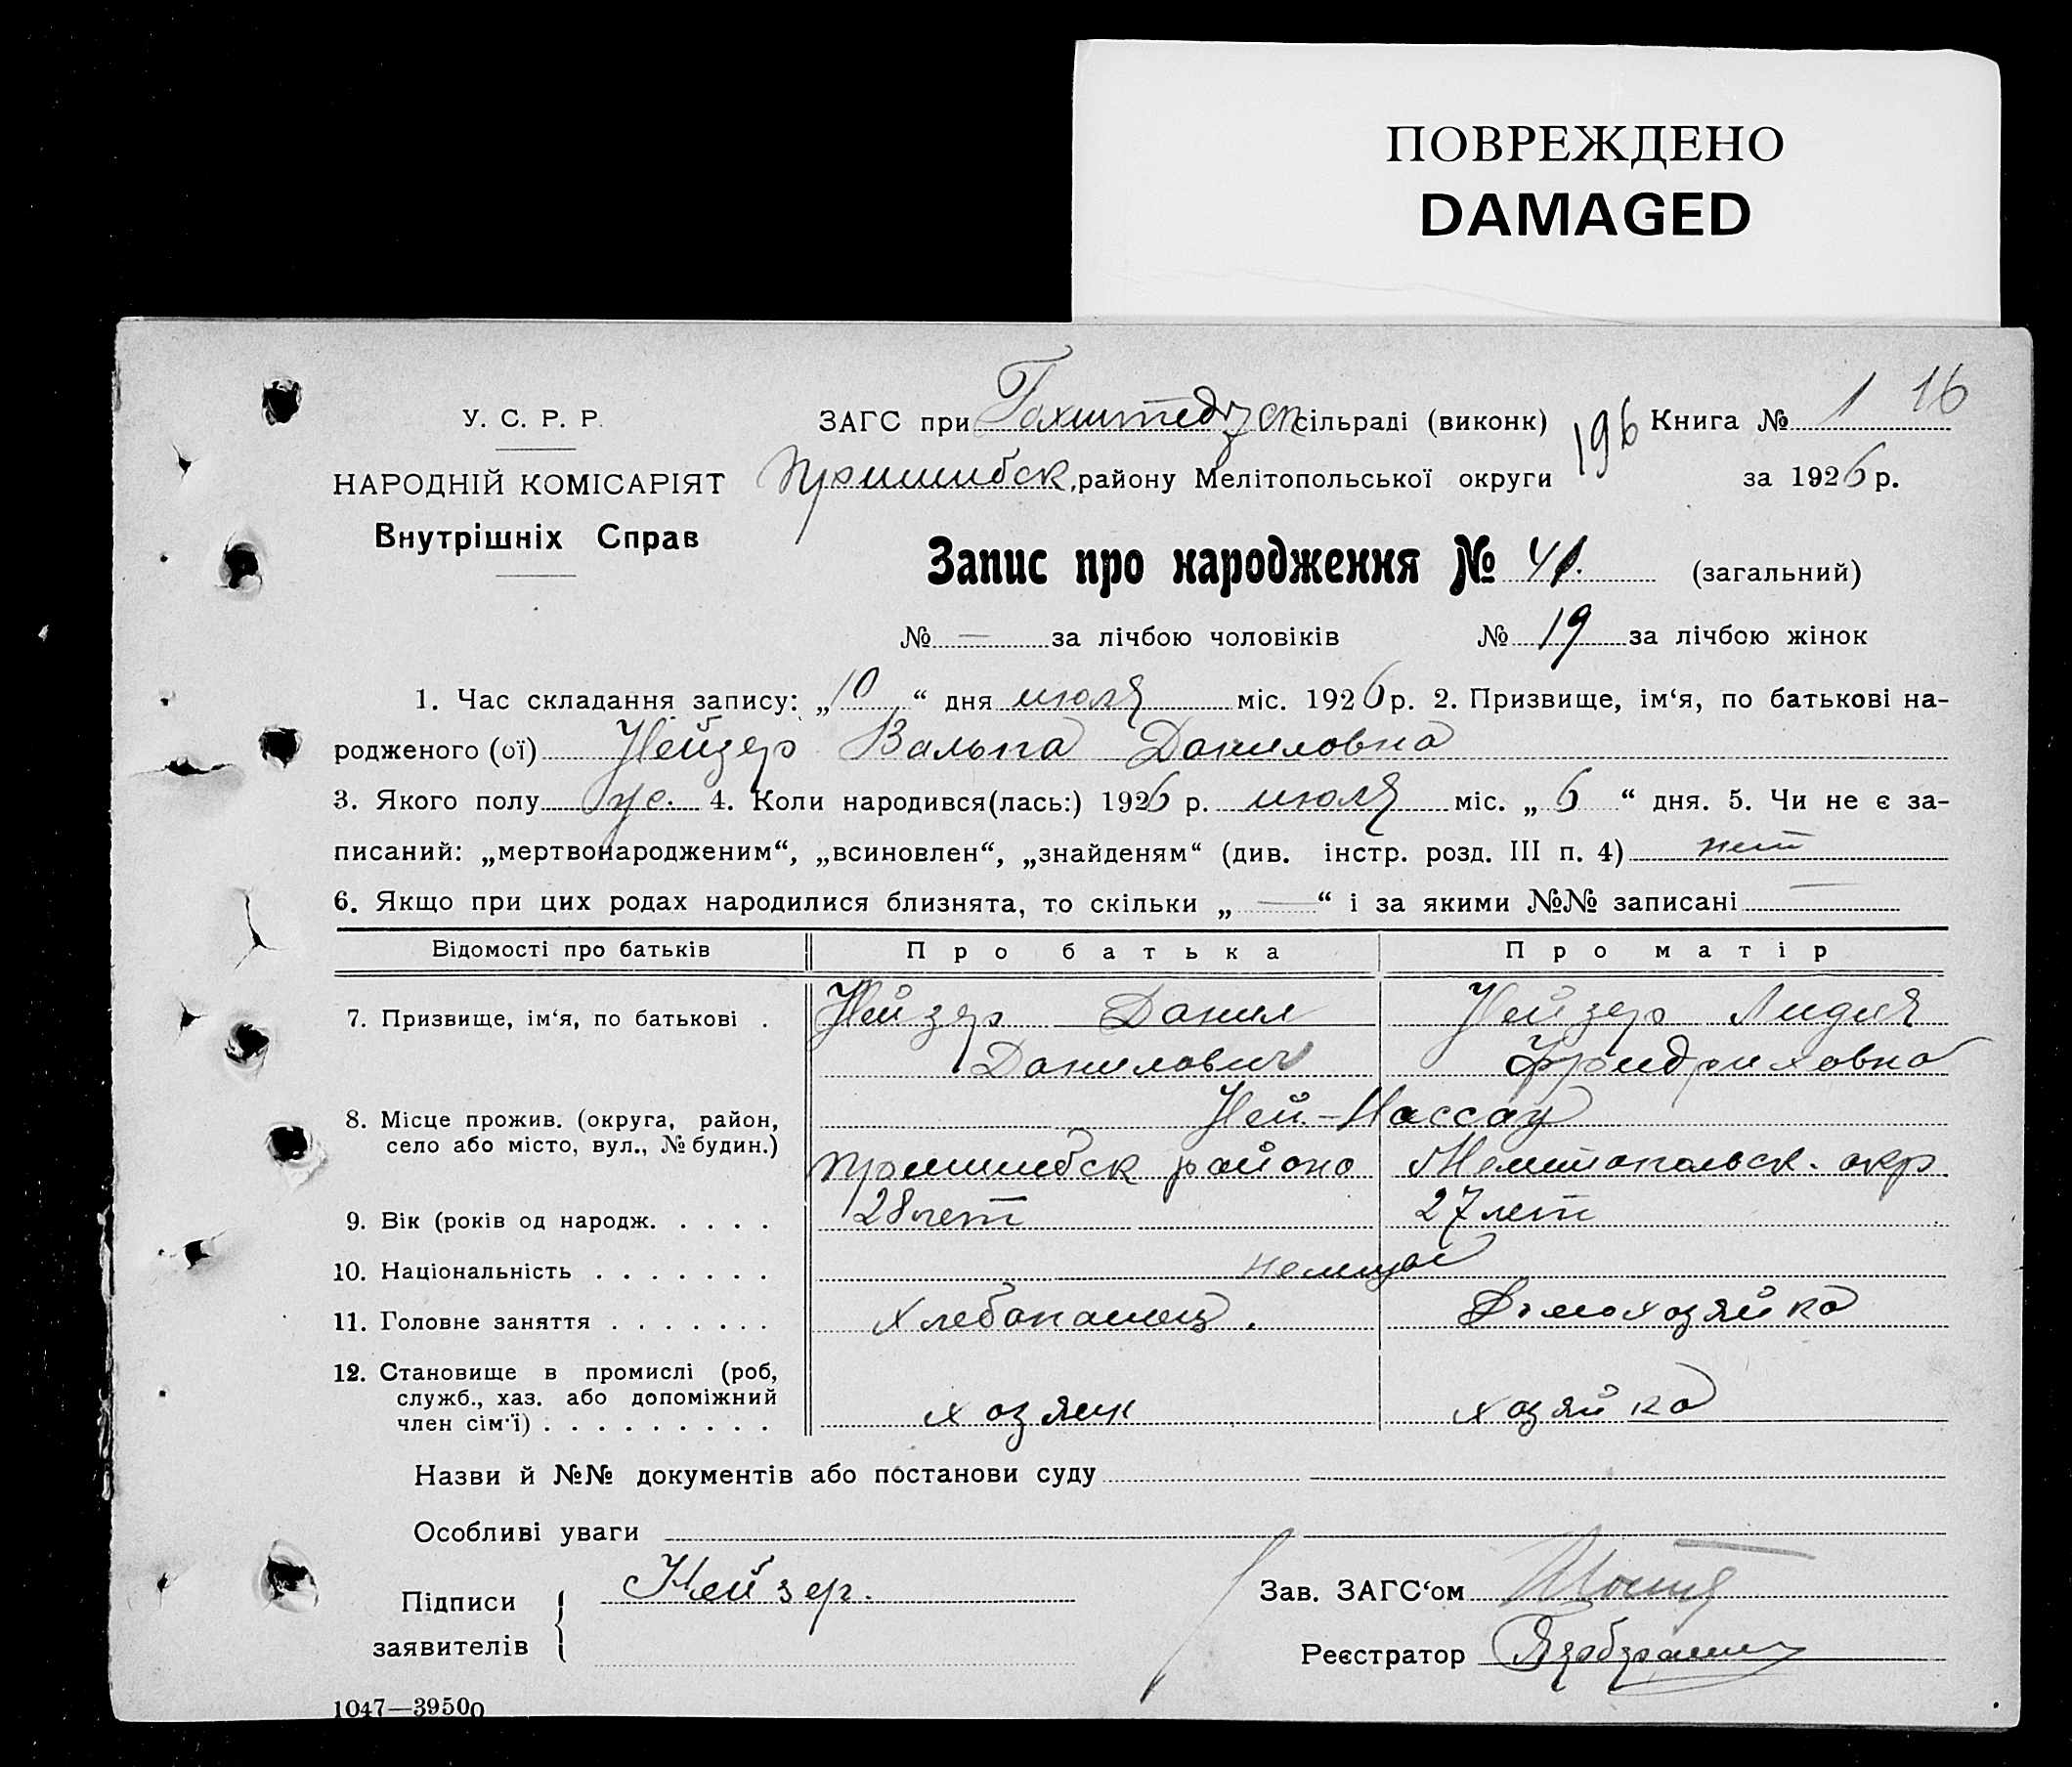 ПОВРЕЖДЕНО
DAMAGED
1 16
У. С. Р. Р.
ЗАГС при Гохштедтск сільраді (виконк) 196 Книга №
НАРОДНІЙ КОМІСАРІЯТ
Пришибск. району Мелітопольської округи за 1926 р.
Внутрішніх Справ
Запис про народження № 41. (загальний)
№ — за лічбою чоловіків № 19 за лічбою жінок
1. Час складання запису: „10“ дня июля міс. 1926 р. 2. Призвище, ім‘я, по батькові на-
родженого (ої) Нейзер Даниловна
3. Якого полу 4. Коли народився(лась:) 1926 р. июля міс. „6“ дня. 5. Чи не є за-
писаний: „мертвонародженим“, „всиновлен“, „знайденям“ (див. інстр. розд. III п. 4) нет
6. Якщо при цих родах народилися близнята, то скільки „—“ і за якими №№ записані —
Відомості про батьків Про батька Про матір
7. Призвище, ім‘я, по батькові . Нейзер Данил Нейзер Лидия
Данилович Фридриховна
8. Місце прожив. (округа, район, Ней-Нассау
село або місто, вул., № будин.) Пришибск района Мелитопольск. окр.
9. Вік (років од народж. . . . . 28 лет 27 лет
10. Національність . . . . . . . немцы
11. Головне заняття . . . . . . . хлебопашец. Домохозяйка
12. Становище в промислі (роб,
служб., хаз. або допоміжний
член сім‘ї) . . . . . . . . . хозяин хозяйка
Назви й №№ документів або постанови суду
Особливі уваги
Підписи Нейзер. Зав. ЗАГС‘ом
заявителів Реєстратор
1047—39500